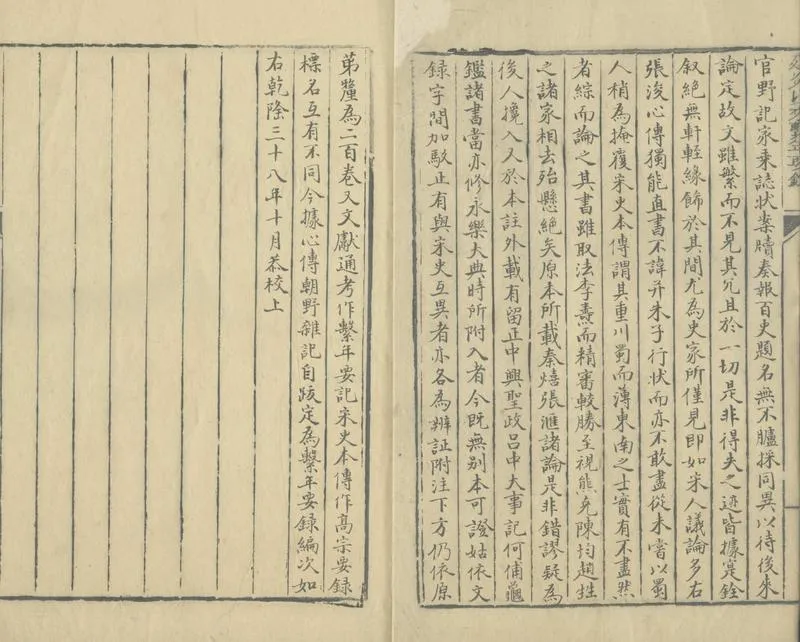 官野記家乘誌狀案牘奏報百史題名無不臚採同異以待後來
論定故文雖繁而不見其冗且於一切是非得失之迹皆據寔銓
叙絶無軒輊緣飾於其間尤為史家所僅見即如宋人議論多右
張浚心傳獨能直書不諱并朱子行狀而亦不敢盡從未嘗以蜀
人稍為掩覆宋史本傳謂其重川蜀而薄東南之士實有不盡然
者綜而論之其書雖取法李燾而精審較勝至視熊克陳均趙甡
之諸家相去殆懸絶矣原本所載秦熺張滙諸論是非錯謬疑為
後人攙入又於本註外載有留正中興聖政吕中大事記何俌龜
鑑諸書當亦修永樂大典時所附入者今既無别本可證姑依文
録字間加駁正有與宋史互異者亦各為辨証附注下方仍依原
第釐為二百卷又文獻通考作繫年要記宋史本傳作髙宗要録
標名互有不同今據心傳朝野雜記自跋定為繫年要録編次如
右乾隆三十八年十月恭校上